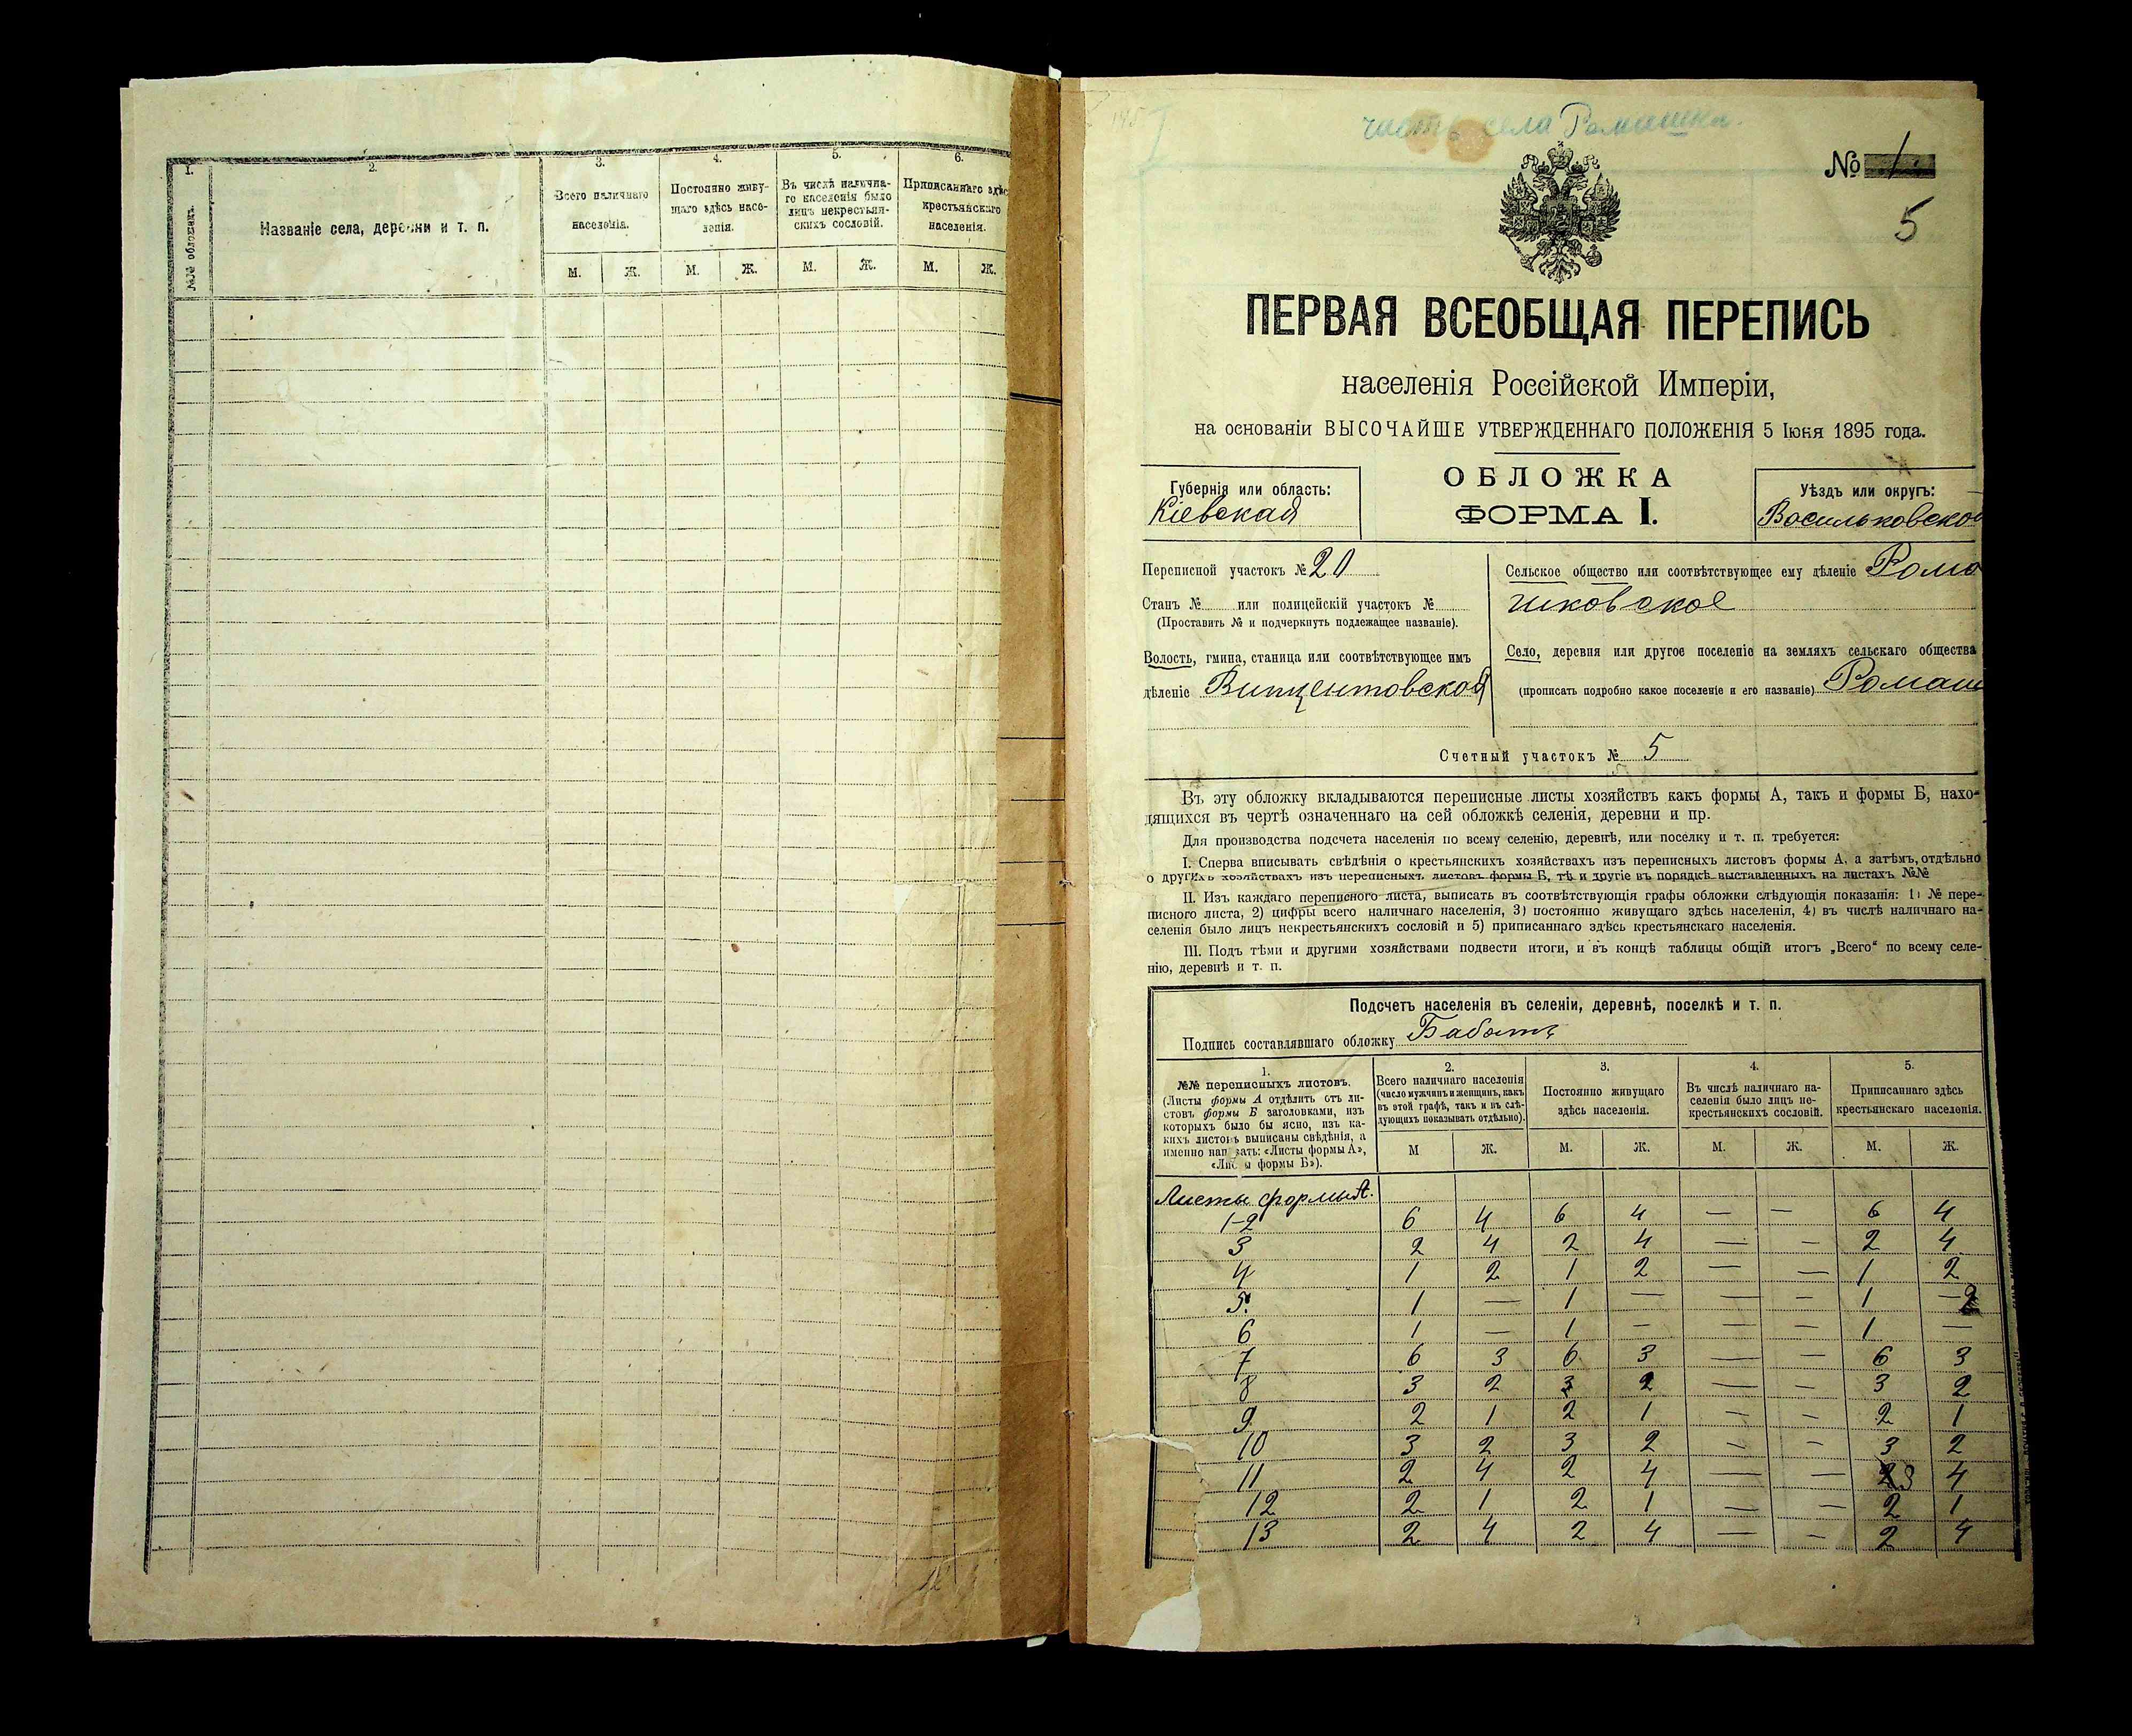 1.
2.
3.
4.
5.
6.
№№ обложекъ.
Названіе села, деревни и т. п.
Всего наличнаго
населенія.
Постоянно живу-
щаго здѣсь насе-
ленія.
Въ числѣ налична-
го населенія было
лицъ некрестьян-
скихъ сословій.
Приписаннаго здѣс
крестьянскаго
населенія.
М. Ж. М. Ж. М. Ж. М. Ж.
часть села Ромашки.
№ 1
5
ПЕРВАЯ ВСЕОБЩАЯ ПЕРЕПИСЬ
населенія Россійской Имперіи,
на основаніи ВЫСОЧАЙШЕ УТВЕРЖДЕННАГО ПОЛОЖЕНІЯ 5 Іюня 1895 года.
Губернія или область:
Кіевская
ОБЛОЖКА
ФОРМА I.
Уѣздъ или округъ:
Васильковской
Переписной участокъ № 20
Станъ № или полицейскій участокъ №
(Проставить № и подчеркнуть подлежащее названіе).
Волость, гмина, станица или соотвѣтствующее имъ
дѣленіе Винцентовской
Сельское общество или соотвѣтствующее ему дѣленіе Рома
шковское
Село, деревня или другое поселеніе на земляхъ сельскаго общества
(прописать подробно какое поселеніе и его названіе) Ромаш
Счетный участокъ № 5
Въ эту обложку вкладываются переписные листы хозяйствъ какъ формы А, такъ и формы Б, нахо-
дящихся въ чертѣ означеннаго на сей обложкѣ селенія, деревни и пр.
Для производства подсчета населенія по всему селенію, деревнѣ, или поселку и т. п. требуется:
I. Сперва вписывать свѣдѣнія о крестьянскихъ хозяйствахъ изъ переписныхъ листовъ формы А, а затѣмъ, отдѣльно
о другихъ хозяйствахъ изъ переписныхъ листовъ формы Б, тѣ и другіе въ порядкѣ выставленныхъ на листахъ №№
II. Изъ каждаго переписного листа, выписать въ соотвѣтствующія графы обложки слѣдующія показанія: 1) № пере-
писного листа, 2) цифры всего наличнаго населенія, 3) постоянно живущаго здѣсь населенія, 4) въ числѣ наличнаго на-
селенія было лицъ некрестьянскихъ сословій и 5) приписаннаго здѣсь крестьянскаго населенія.
III. Подъ тѣми и другими хозяйствами подвести итоги, и въ концѣ таблицы общій итогъ „Всего“ по всему селе-
нію, деревнѣ и т. п.
Подсчетъ населенія въ селеніи, деревнѣ, поселкѣ и т. п.
Подпись составлявшаго обложку
1.
№№ переписныхъ листовъ.
(Листы формы А отдѣлить отъ ли-
стовъ формы Б заголовками, изъ
которыхъ было бы ясно, изъ ка-
кихъ листовъ выписаны свѣдѣнія, а
именно написать: «Листы формы А»,
«Листы формы Б»).
2.
Всего наличнаго населенія
(число мужчинъ и женщинъ, какъ
въ этой графѣ, такъ и въ слѣ-
дующихъ показывать отдѣльно).
3.
Постоянно живущаго
здѣсь населенія.
4.
Въ числѣ наличнаго на-
селенія было лицъ не-
крестьянскихъ сословій.
5.
Приписаннаго здѣсь
крестьянскаго населенія.
М Ж. М. Ж. М. Ж. М. Ж.
Листы формы А.
1-2 6 4 6 4 — — 6 4
3 2 4 2 4 — — 2 4
4 1 2 1 2 — — 1 2
5. 1 — 1 — — — 1 —
6 1 — 1 — — — 1 —
7 6 3 6 3 — — 6 3
8 3 2 3 2 — — 3 2
9 2 1 2 1 — — 2 1
10 3 2 3 2 — — 3 2
11 2 4 2 4 — — 3 4
12 2 1 2 1 — — 2 1
13 2 4 2 4 — — 2 4